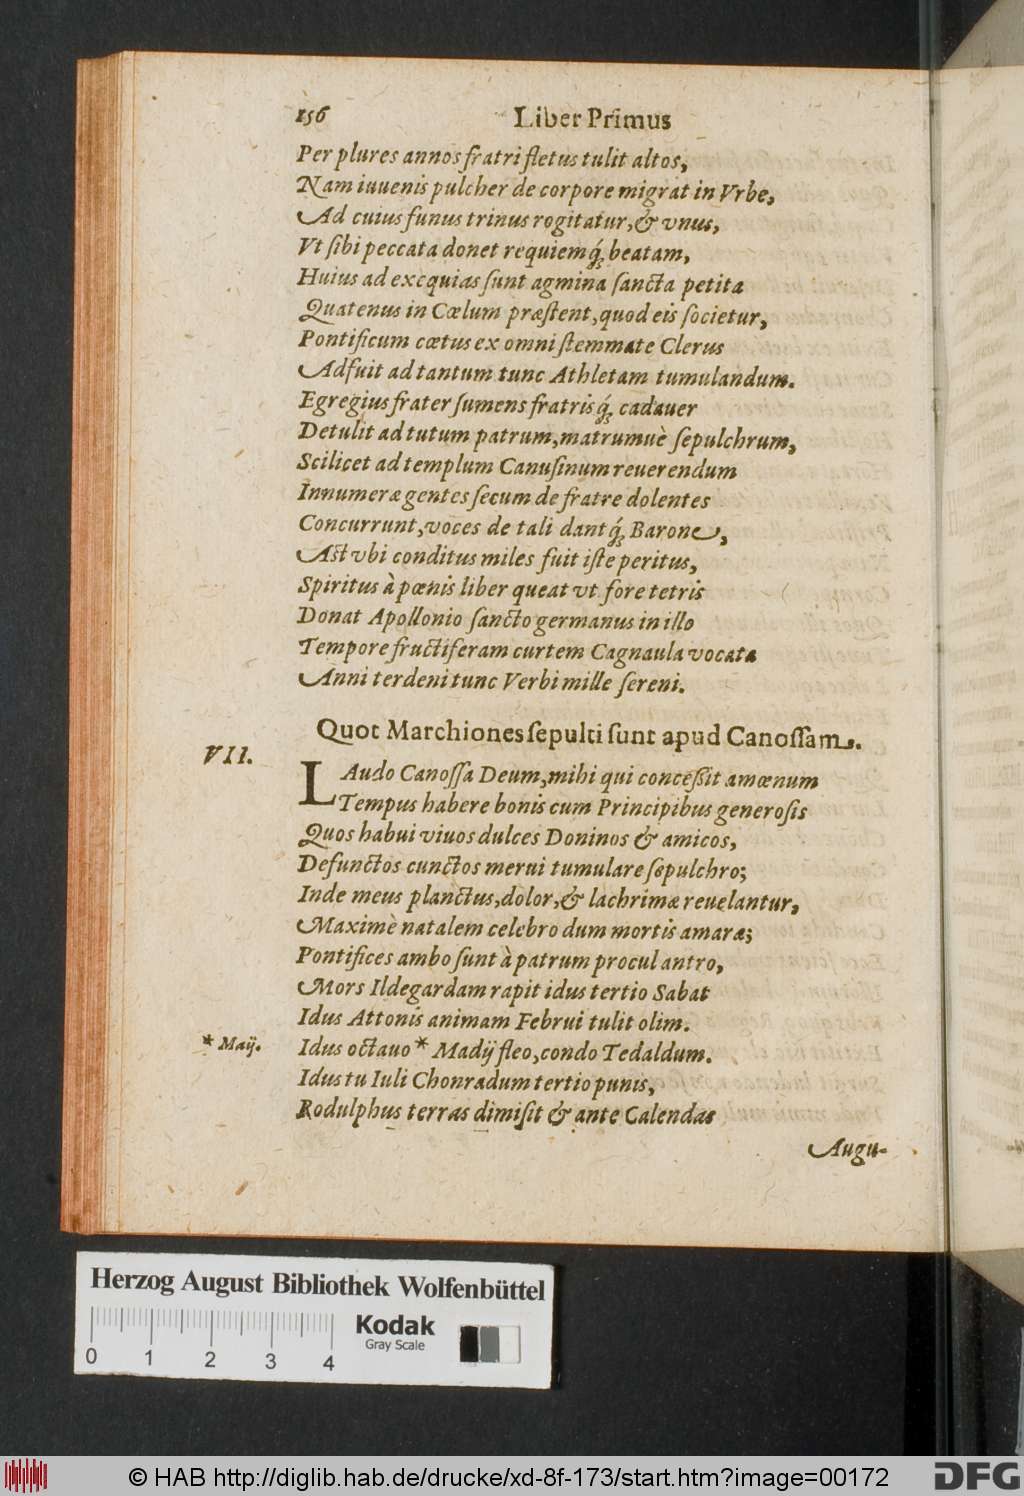 156 Liber Primus
Per plures annos fratri fletus tulit altos,
Nam iuuenis pulcher de corpore migrat in Vrbe,
Ad cuius funus trinus rogitatur, & vnus,
Vt sibi peccata donet requiemq́; beatam,
Huius ad exequias sunt agmina sancta petita
Quatenus in Cœlum præstent, quod eis societur,
Pontificum cœtus ex omni stemmate Clerus
Adfuit ad tantum tunc Athletam tumulandum.
Egregius frater sumens fratrisq́; cadauer
Detulit ad tutum patrum, matrumuè sepulchrum,
Scilicet ad templum Canusinum reuerendum
Innumeræ gentes secum de fratre dolentes
Concurrunt, voces de tali dantq́; Barone,
Ast vbi conditus miles fuit iste peritus,
Spiritus à pœnis liber queat vt fore tetris
Donat Apollonio sancto germanus in illo
Tempore fructiferam curtem Cagnaula vocata
Anni terdeni tunc Verbi mille sereni.
Quot Marchiones sepulti sunt apud Canossam.
VII.
LAudo Canossa Deum, mihi qui concessit amœnum
Tempus habere bonis cum Principibus generosis
Quos habui viuos dulces Doninos & amicos,
Defunctos cunctos merui tumulare sepulchro;
Inde meus planctus, dolor, & lachrimæ reuelantur,
Maximè natalem celebro dum mortis amaræ;
Pontifices ambo sunt à patrum procul antro,
Mors Ildegardam rapit idus tertio Sabat
Idus Attonis animam Februi tulit olim.
* Maij.
Idus octauo * Madij fleo, condo Tedaldum.
Idus tu Iuli Chonradum tertio punis,
Rodulphus terras dimisit & ante Calendas
Augu-
Herzog August Bibliothek Wolfenbüttel
Kodak
Gray Scale
0 1 2 3 4
© HAB http://diglib.hab.de/drucke/xd-8f-173/start.htm?image=00172
DFG